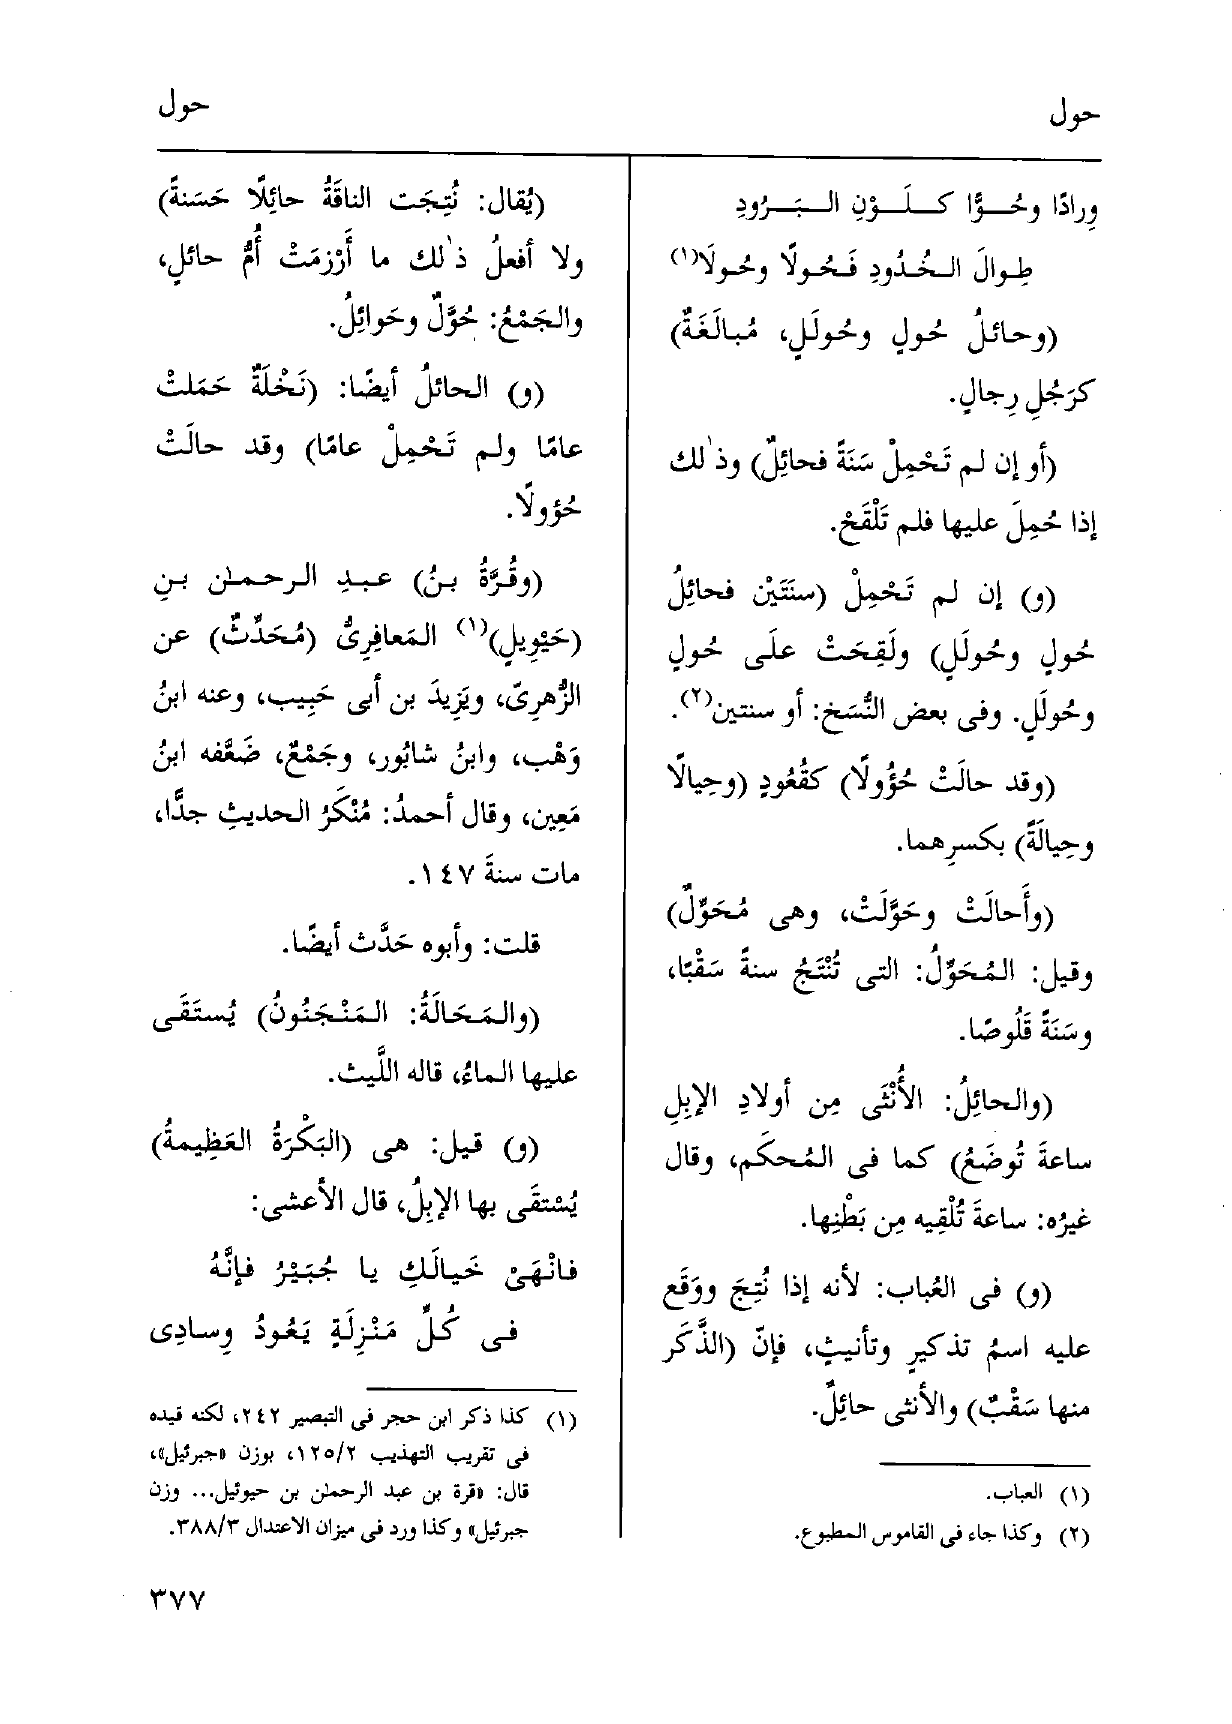 حول
حول
وِرادًا وحُـوًّا كَـلَـوْنِ الـبَـرُودِ
طِوالَ الـخُدُودِ فَـحُولًا وحُولَا(١)
(وحائلُ حُولٍ وحُولَلٍ، مُبالَغَةٌ)
كرَجُلِ رِجالٍ.
(أو إن لم تَحْمِلْ سَنَةً فحائِلٌ) وذٰلك
إذا حُمِلَ عليها فلم تَلْقَحْ.
(و) إن لم تَحْمِلْ (سنَتَيْن فحائِلُ
حُولٍ وحُولَلٍ) ولَقِحَتْ علَى حُولٍ
وحُولَلٍ. وفى بعض النُّسَخ: أو سنتين(٢).
(وقد حالَتْ حُؤُولًا) كقُعُودٍ (وحِيالًا
وحِيالَةً) بكسرِهما.
(وأَحالَتْ وحَوَّلَتْ، وهى مُحَوِّلٌ)
وقيل: المُحَوِّلُ: التى تُنْتَجُ سنةً سَقْبًا،
وسَنَةً قَلُوصًا.
(والحائِلُ: الأُنْثَى مِن أولادِ الإبِلِ
ساعةَ تُوضَعُ) كما فى المُحكَم، وقال
غيرُه: ساعةَ تُلْقِيه مِن بَطْنِها.
(و) فى العُباب: لأنه إذا نُتِجَ ووَقَع
عليه اسمُ تذكيرٍ وتأنيثٍ، فإنّ (الذَّكَر
منها سَقْبٌ) والأنثى حائِلٌ.
(١) العباب.
(٢) وكذا جاء فى القاموس المطبوع.
(يُقال: نُتِجَت الناقَةُ حائِلًا حَسَنةً)
ولا أفعلُ ذٰلك ما أَرْزمَتْ أُمُّ حائلٍ،
والجَمْعُ: حُوَّلٌ وحَوائِلُ.
(و) الحائلُ أيضًا: (نَخْلَةٌ حَمَلتْ
عامًا ولم تَحْمِلْ عامًا) وقد حالَتْ
حُؤولًا.
(وقُرَّةُ بنُ) عبدِ الرحمٰن بنِ
(حَيْوِيلٍ)(١) المَعافِرِىُّ (مُحَدِّثٌ) عن
الزُّهرِىّ، ويَزِيدَ بن أبى حَبِيب، وعنه ابنُ
وَهْب، وابنُ شابُور، وجَمْعٌ، ضَعَّفه ابنُ
مَعِين، وقال أحمدُ: مُنْكَرُ الحديثِ جدًّا،
مات سنةَ ١٤٧.
قلت: وأبوه حَدَّث أيضًا.
(والمَحَالَةُ: المَنْجَنُونُ) يُستَقَى
عليها الماءُ، قاله اللَّيث.
(و) قيل: هى (البَكْرَةُ العَظِيمةُ)
يُسْتقَى بها الإبِلُ، قال الأعشى:
فانْهَىْ خَيالَكِ يا جُبَيْرُ فإنَّهُ
فى كُلِّ مَنْزِلَةٍ يَعُودُ وِسادِى
(١) كذا ذكر ابن حجر فى التبصير ٢٤٢، لكنه قيده
فى تقريب التهذيب ١٢٥/٢، بوزن «جبرئيل»،
قال: «قرة بن عبد الرحمٰن بن حيوئيل... وزن
جبرئيل» وكذا ورد فى ميزان الاعتدال ٣٨٨/٣.
٣٧٧